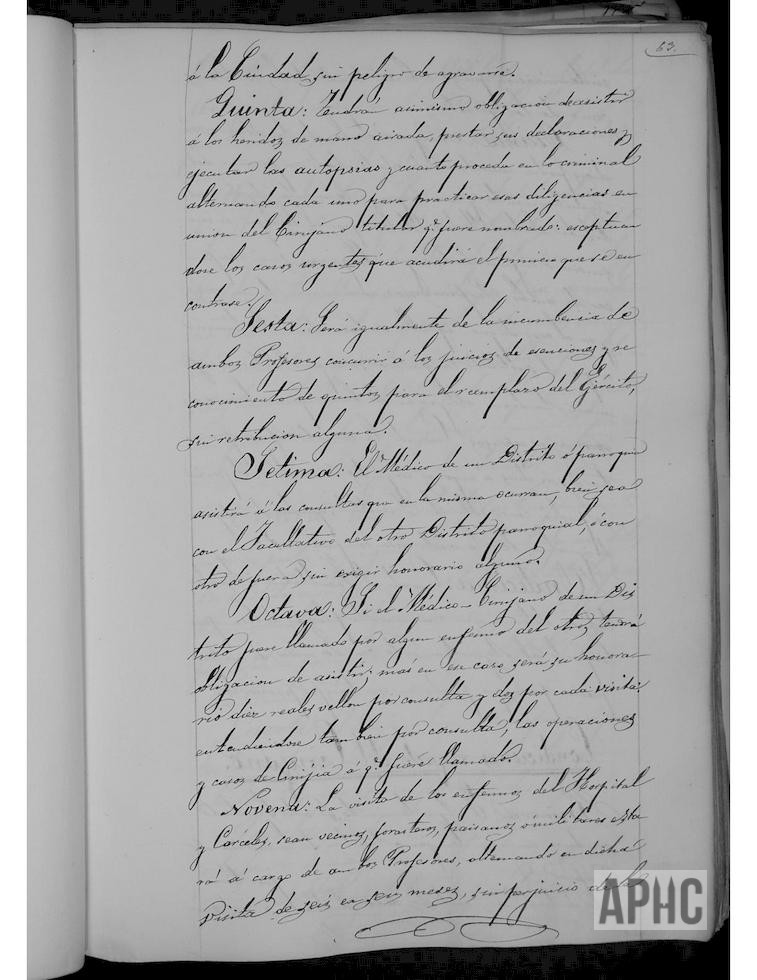 63.
á la Ciudad, sin peligro de agravarse.
Quinta: Tendrán asimismo obligacion de asistir
á los heridos de mano airada, prestar sus declaraciones, y
ejecutar las autopsias y cuanto proceda en lo criminal
alternando cada uno para practicar esas diligencias en
union del Cirujano titular q.e fuere nombrado: esceptuan
dose los casos urgentes que acudirá el primero que se en
contrase.
Sesta: Será igualmente de la incumbencia de
ambos Profesores concurrir á los juicios de esenciones y re
conocimiento de quintos para el reemplazo del Ejército,
sin retribucion alguna.
Setima: El Médico de un Distrito ó parroquia
asistirá á las consultas que en la misma ocurran, bien sea
con el Facultativo del otro Distrito parroquial, ó con
otro de fuera sin exigir honorario alguno.
Octava: Si el Médico-Cirujano de un Dis
trito fuere llamado por algun enfermo del otro, tendrá
obligacion de asistir, mas en ese caso será su honora-
rio diez reales vellon por consulta y dos por cada visita:
entendiendose tambien por consulta, las operaciones
y casos de Cirujia á q.e fuere llamado.
Novena: La visita de los enfermos del Hospital
y Carceles, sean vecinos, forasteros, paisanos ó militares esta
rá á cargo de ambos Profesores, alternando en dicha
visita de seis en seis meses, sin perjuicio de
APHC